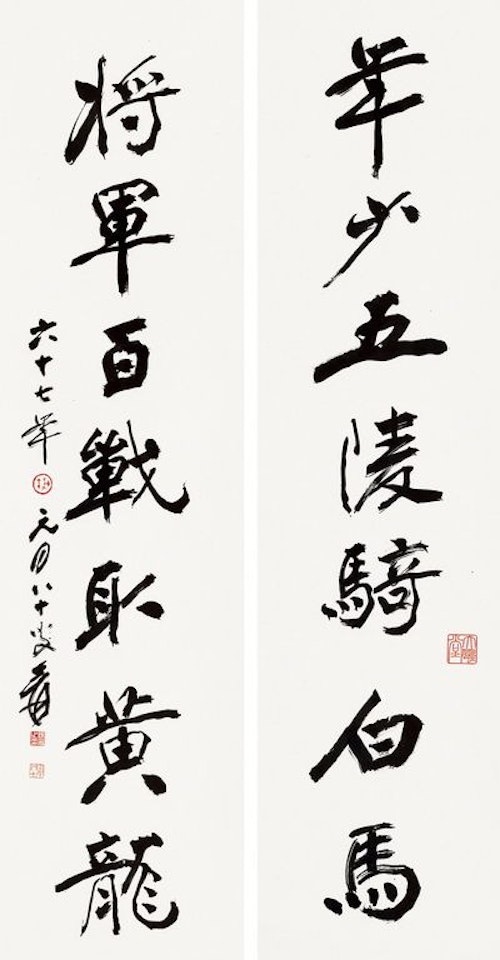 年少五陵騎白馬
將軍百戰取黃龍
六十七年元月八十叟爰
大風堂